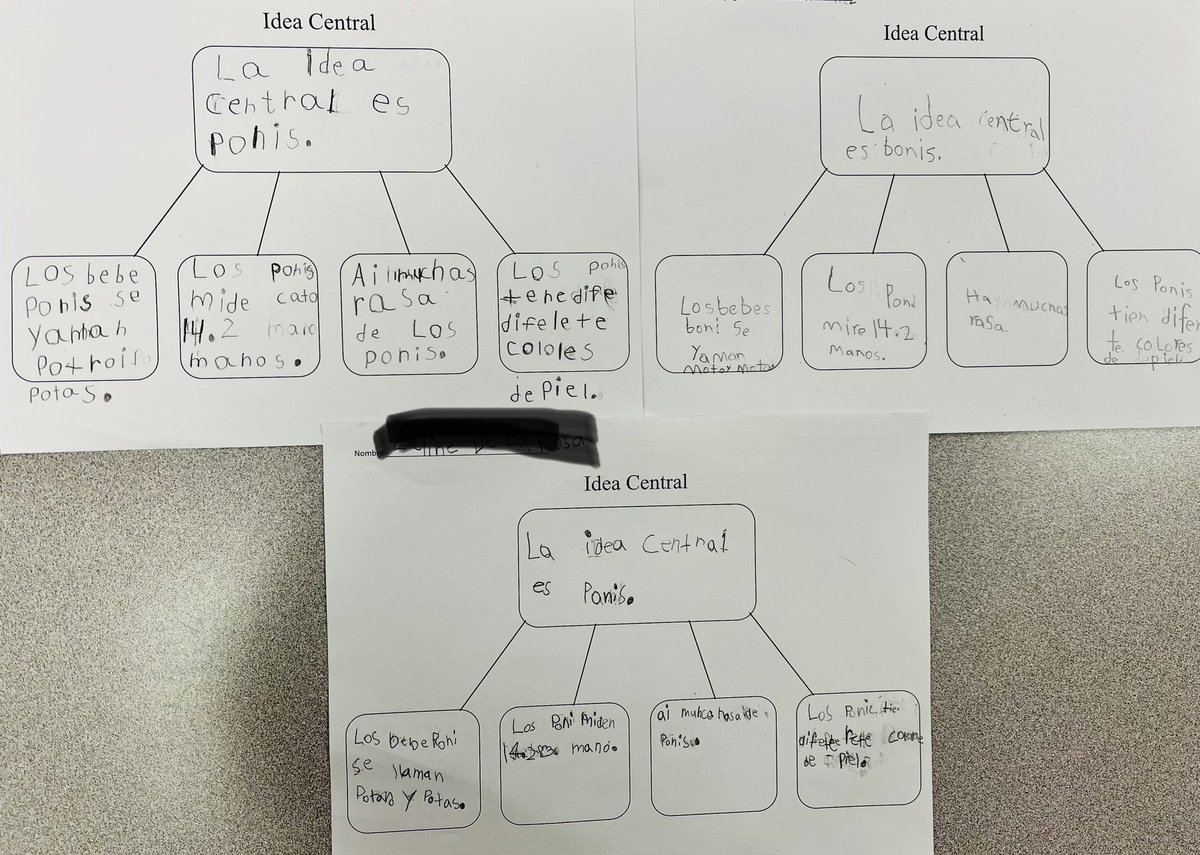 Idea Central
La idea
central es
ponis.
Los bebe
ponis se
yaman
Potros
potas.
Los ponis
mide cato
14.2
manos.
Ai muchas
rasa
de Los
ponis.
Los ponis
tene dife
difelete
cololes
de piel.
Idea Central
La idea central
es bonis.
Los bebes
boni se
yaman
Los Poni
mire 14.2
manos.
Hay muchas
rasa
Los Ponis
tien difer
te colores
de piel
Nombre
Idea Central
La idea Central
es Panis.
Los bebe Poni
se llaman
Potros y Potas.
Los Poni miden
mano.
ai muhca rasa de
Ponis.
Los Ponic tie
difete
de piel.